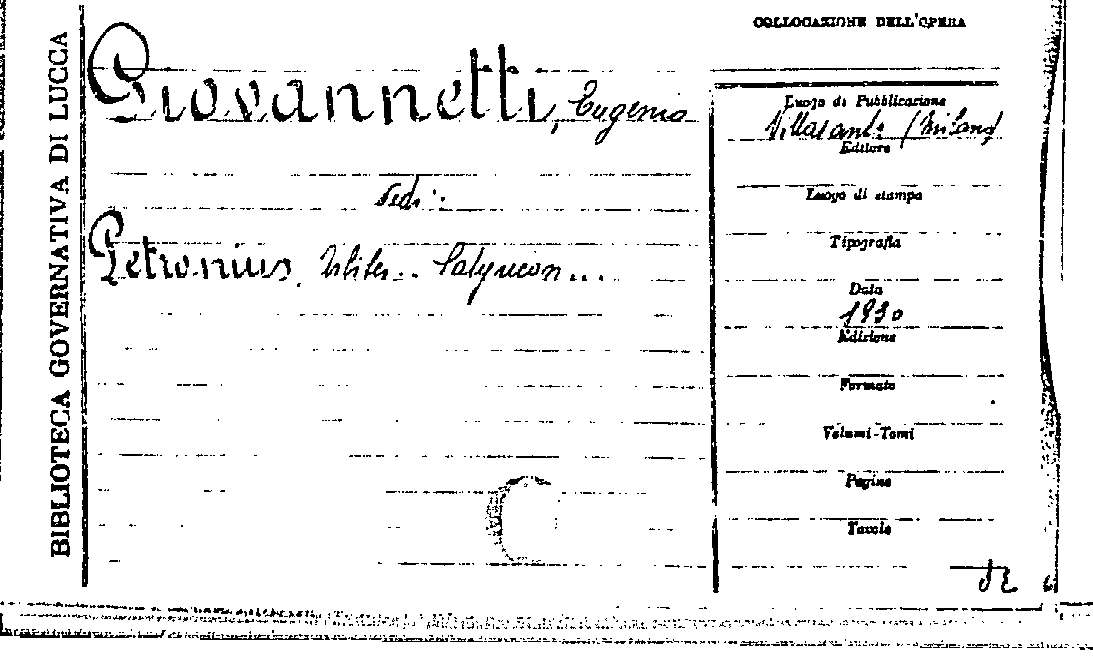 BIBLIOTECA GOVERNATIVA DI LUCCA
COLLOCAZIONE DELL'OPERA
Giovannetti, Eugenio
Vedi:
Petronius, Satyricon...
Luogo di Pubblicazione
Villasanta (Milano)
Editore
Luogo di stampa
Tipografia
Data
1930
Edizione
Formato
Volumi-Tomi
Pagine
Tavole